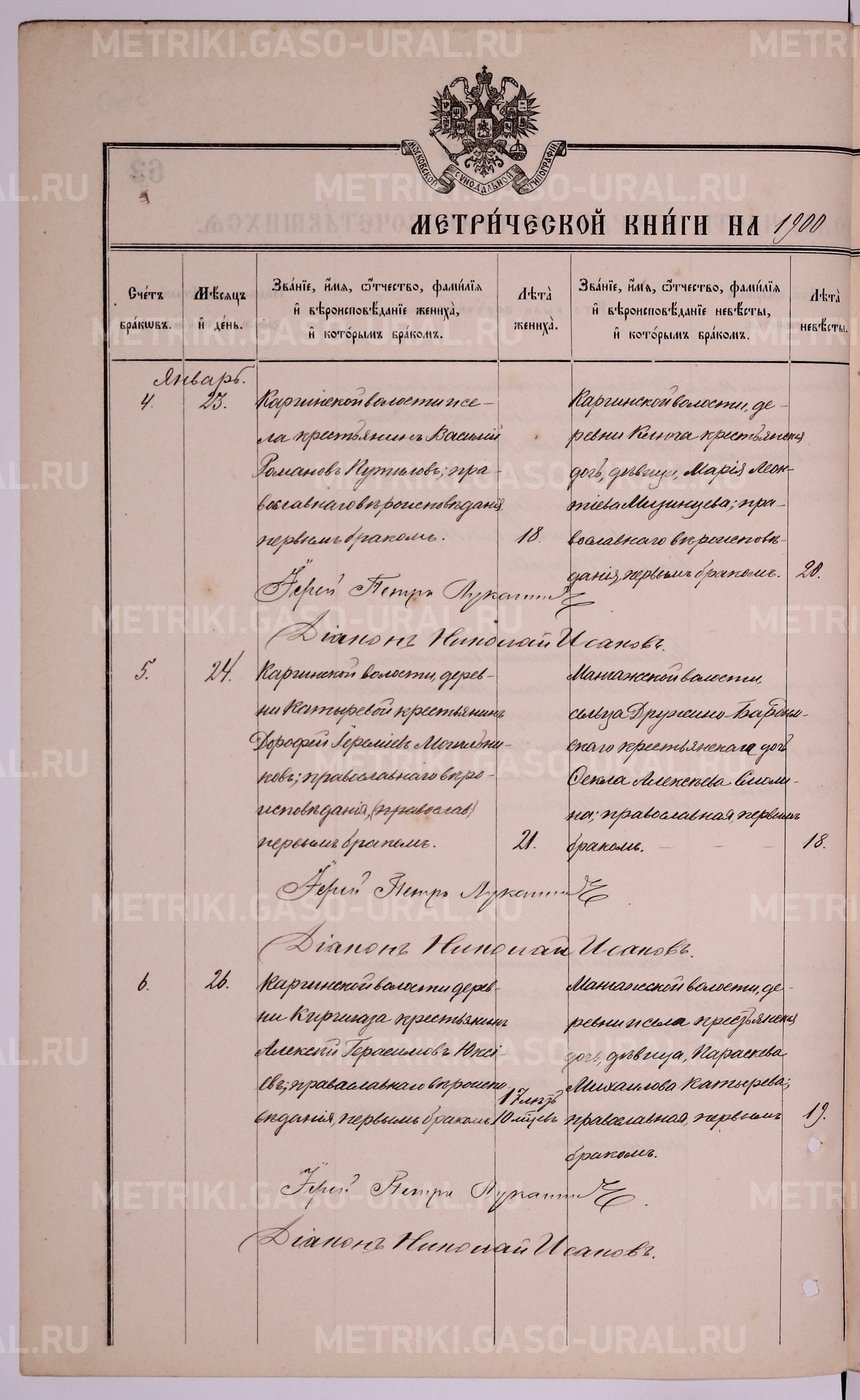 METRIKI.GASO-URAL.RU
МОСКОВСКОЙ СУНОДАЛЬНОЙ ТИПОГРАФІИ
МЕТРИ́ЧЕСКОЙ КНИ́ГИ НА 1900
Счетъ браковъ.
Мѣсяцъ и день.
Званіе, имя, отчество, фамилія
и вѣроисповѣданіе жениха,
и которымъ бракомъ.
Лѣта жениха.
Званіе, имя, отчество, фамилія
и вѣроисповѣданіе невѣсты,
и которымъ бракомъ.
Лѣта невѣсты.
Январь.
4.
23.
Каргинской волости и се-
ла крестьянинъ Василій
Романовъ Путиловъ; пра-
вославнаго вѣроисповѣданія
первымъ бракомъ.
18.
Каргинской волости, де-
ревни Ключа крестьянская
дочь, дѣвица, Марія Леон-
тіева Мизинцева; пра-
вославнаго вѣроисповѣ-
данія, первымъ бракомъ.
20.
Іерей Петръ
Діаконъ Николай Исаковъ.
5.
24.
Каргинской волости, дерев-
ни Катыревой крестьянинъ
Дорофей Іереміевъ Могильни-
ковъ; православнаго вѣро-
исповѣданія, (православ)
первымъ бракомъ.
21.
Манчажской волости,
сельца Дружино-Бардым-
скаго крестьянская дочь
Ѳекла Алексѣева Смоли-
на; православная, первымъ
бракомъ.
18.
Іерей Петръ
Діаконъ Николай Исаковъ.
6.
26.
Каргинской волости дерев-
ни Киргигаза крестьянинъ
Алексѣй Герасимовъ
православнаго вѣроиспо-
вѣданія, первымъ бракомъ
17 лѣтъ
10 мѣсцевъ
Манчажской волости, де-
ревни и села крестьянская
дочь, дѣвица, Параскева
Михаилова Катырева;
православная, первымъ
бракомъ.
19.
Іерей Петръ
Діаконъ Николай Исаковъ.